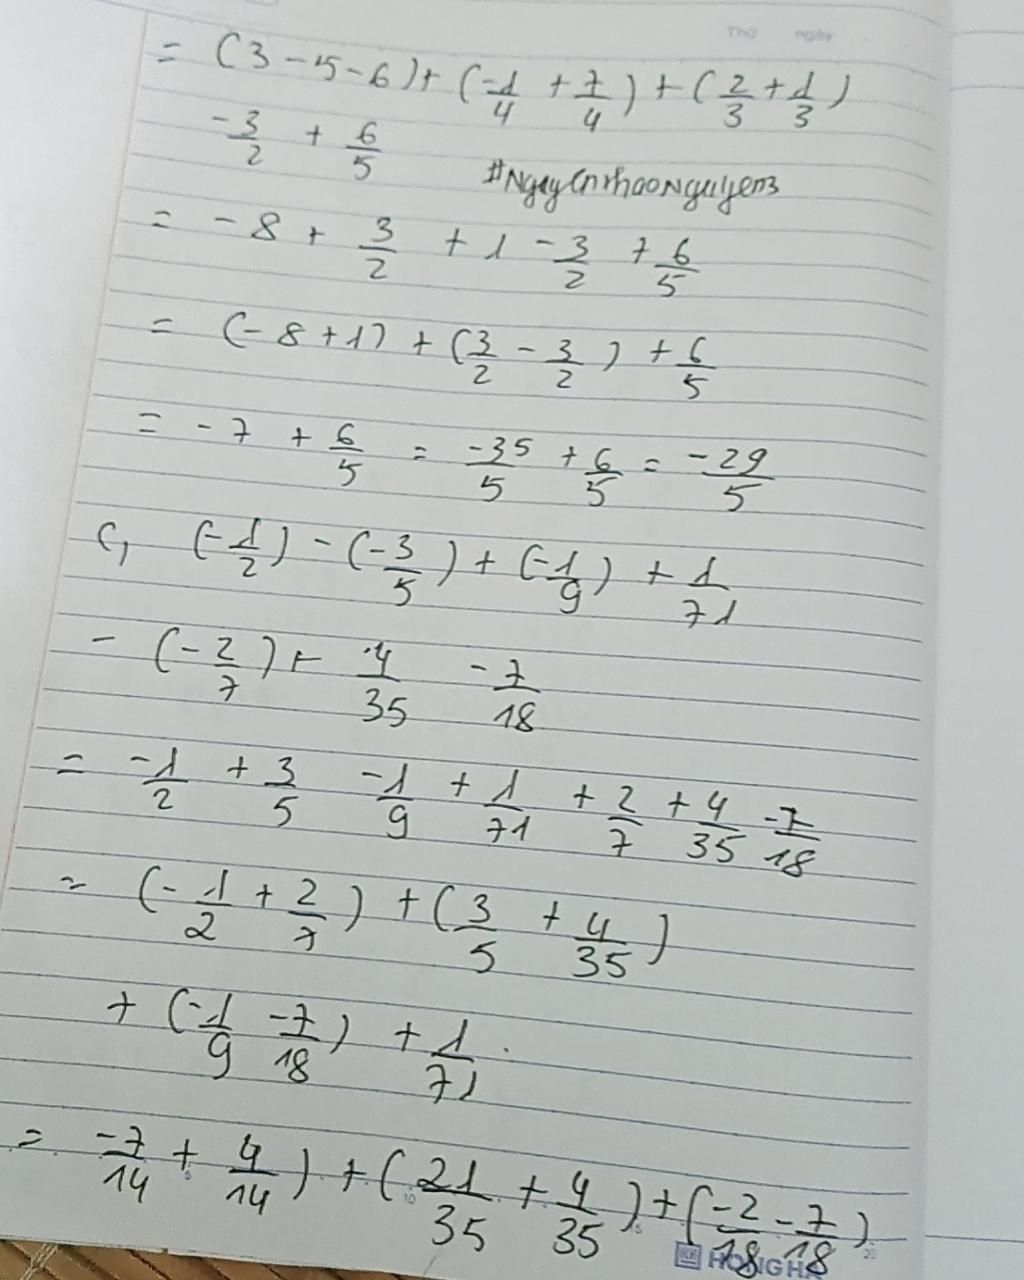 Thứ ngày
= (3 - 5 - 6) + (-1/4 + 7/4) + (2/3 + 1/3)
-3/2 + 6/5
= -8 + 3/2 + 1 - 3/2 + 6/5
= (-8 + 1) + (3/2 - 3/2) + 6/5
= -7 + 6/5 = -35/5 + 6/5 = -29/5
c, (-1/2) - (-3/5) + (-1/9) + 1/71
- (-2/7) + 4/35 - 7/18
= -1/2 + 3/5 - 1/9 + 1/71 + 2/7 + 4/35 - 7/18
= (-1/2 + 2/7) + (3/5 + 4/35)
+ (-1/9 - 7/18) + 1/71
= -7/14 + 4/14) + (21/35 + 4/35) + (-2/18 - 7/18)
HONG HA